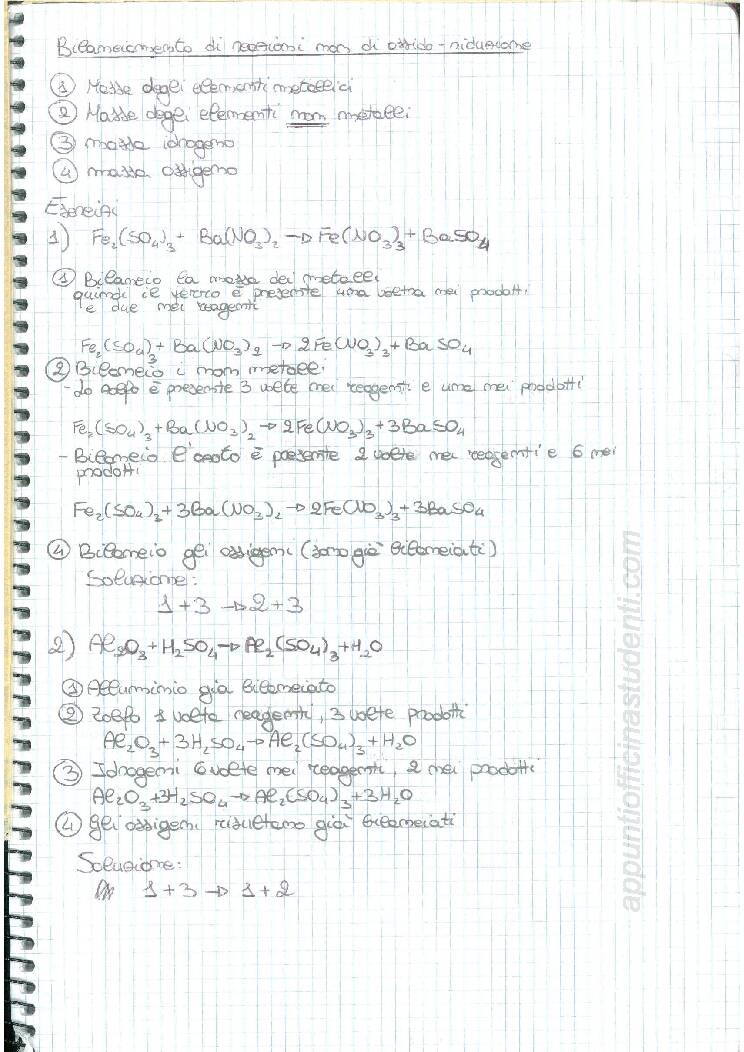 Bilanciamento di reazioni non di ossido-riduzione
① Masse degli elementi metallici
② Masse degli elementi non metalli
③ massa idrogeno
④ massa ossigeno
Esercizi
1) Fe₂(SO₄)₃ + Ba(NO₃)₂ → Fe(NO₃)₃ + BaSO₄
① Bilancio la massa dei metalli
quindi il ferro è presente una volta nei prodotti
e due nei reagenti
Fe₂(SO₄)₃ + Ba(NO₃)₂ → 2Fe(NO₃)₃ + BaSO₄
② Bilancio i non metalli
- lo zolfo è presente 3 volte nei reagenti e una nei prodotti
Fe₂(SO₄)₃ + Ba(NO₃)₂ → 2Fe(NO₃)₃ + 3BaSO₄
- Bilancio l'azoto è presente 2 volte nei reagenti e 6 nei
prodotti
Fe₂(SO₄)₃ + 3Ba(NO₃)₂ → 2Fe(NO₃)₃ + 3BaSO₄
④ Bilancio gli ossigeni (sono già bilanciati)
Soluzione:
1 + 3 → 2 + 3
2) Al₂O₃ + H₂SO₄ → Al₂(SO₄)₃ + H₂O
① Alluminio già bilanciato
② Zolfo 1 volta reagenti, 3 volte prodotti
Al₂O₃ + 3H₂SO₄ → Al₂(SO₄)₃ + H₂O
③ Idrogeni 6 volte nei reagenti, 2 nei prodotti
Al₂O₃ + 3H₂SO₄ → Al₂(SO₄)₃ + 3H₂O
④ Gli ossigeni risultano già bilanciati
Soluzione:
1 + 3 → 1 + 2
appuntiofficinastudenti.com